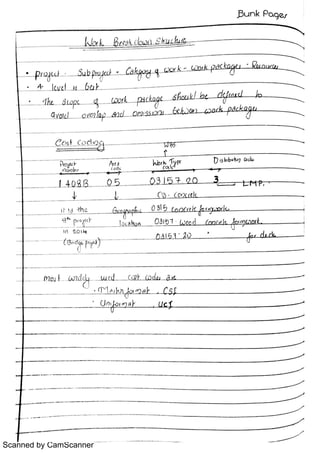 Bunk Pages
Work Breakdown Structure
• project - Subproject - Category of work - work packages - Resources
• 4 level is best
• The scope of work package should be defined to
avoid overlap and omissions between work packages
Cost coding
WBS
Project number Area code Work Type code Distribution Code
1408B 05 03157.20 3 L.M.P.
03 - concrete
it is the Geographic 0315 concrete formwork
8th project location 03157 wood concrete formwork
in 2014 03157.20 " for decks
(Bridge project)
most widely used cost codes are
• Masterformat . CSI
• Uniformat . UCI
Scanned by CamScanner